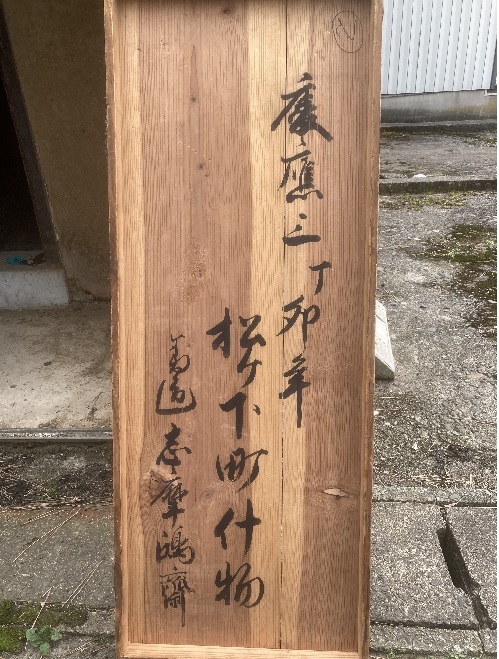 慶應三丁卯年
松ケ下町什物
志摩鴻齋